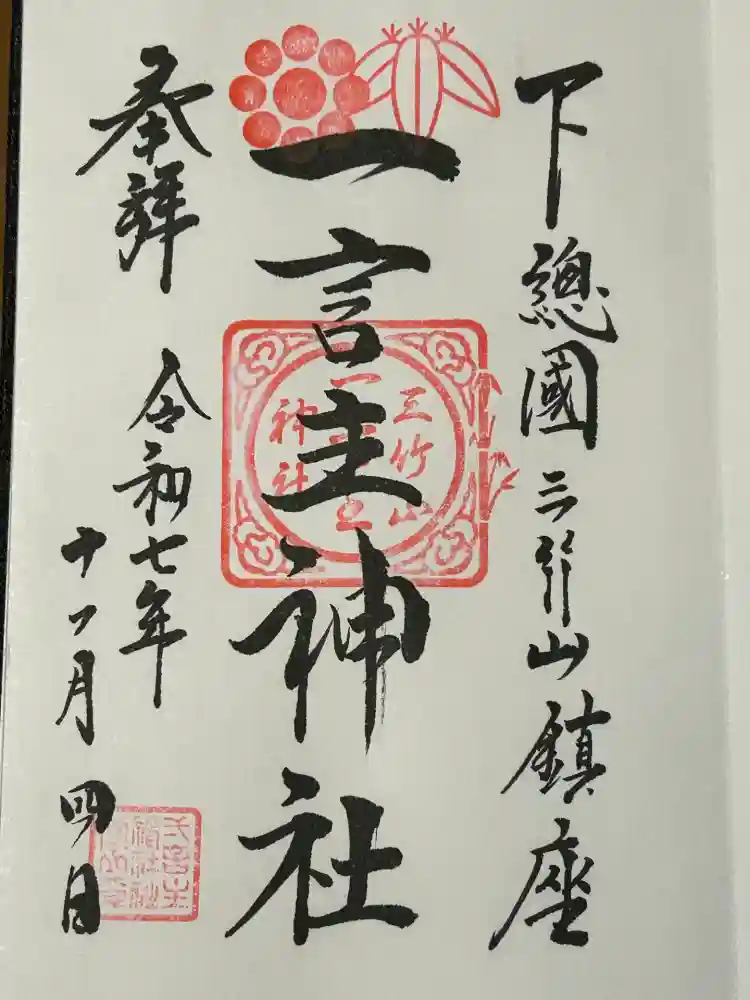 下總國三竹山鎮座
一言主神社
奉拜
令和七年
十 月四日
三竹山
一言主
神社